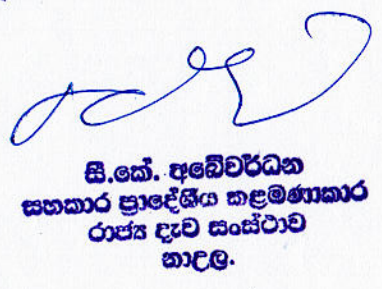 සී.කේ. අබේවර්ධන
සහකාර ප්‍රාදේශීය කළමණාකාර
රාජ්‍ය දැව සංස්ථාව
නාඋල.